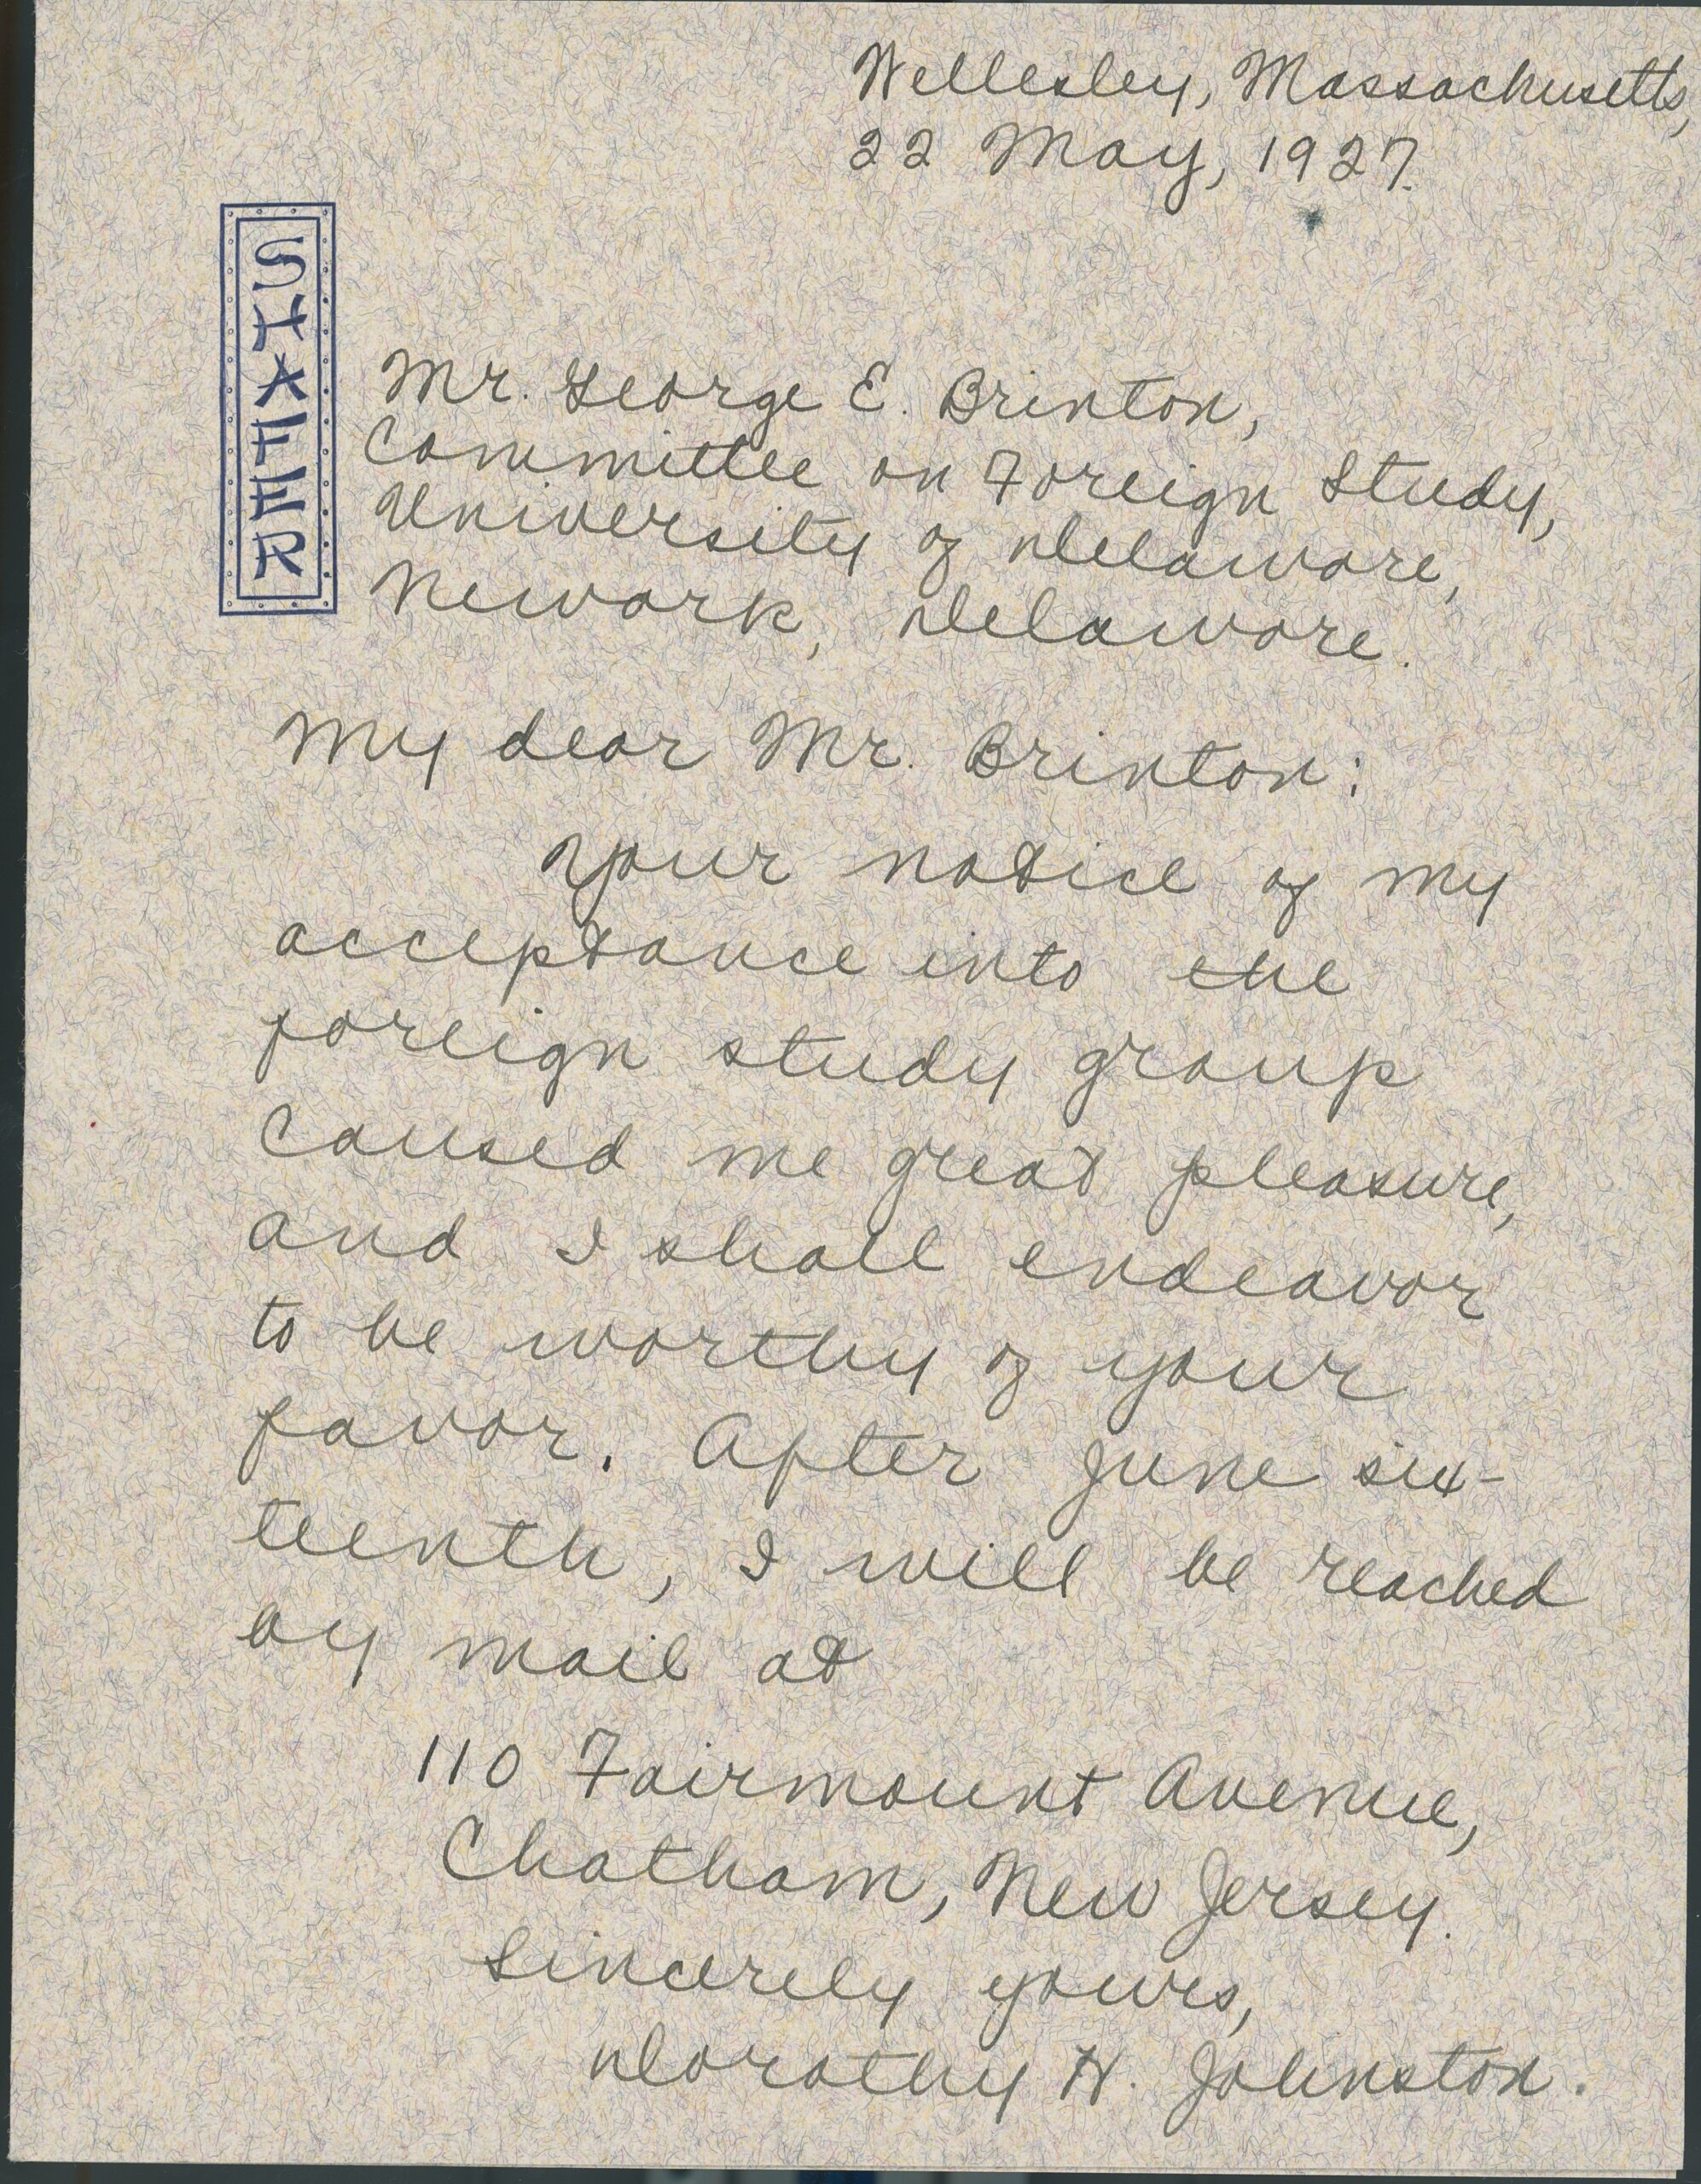 Wellesley, Massachusetts,
22 May, 1927.
SHAFER
Mr. George E. Brinton,
Committee on Foreign Study,
University of Delaware,
Newark, Delaware.
My dear Mr. Brinton:
Your notice of my
acceptance into the
foreign study group
caused me great pleasure,
and I shall endeavor
to be worthy of your
favor. After June six-
teenth, I will be reached
by mail at
110 Fairmount Avenue,
Chatham, New Jersey.
Sincerely yours,
Dorothy H. Johnston.